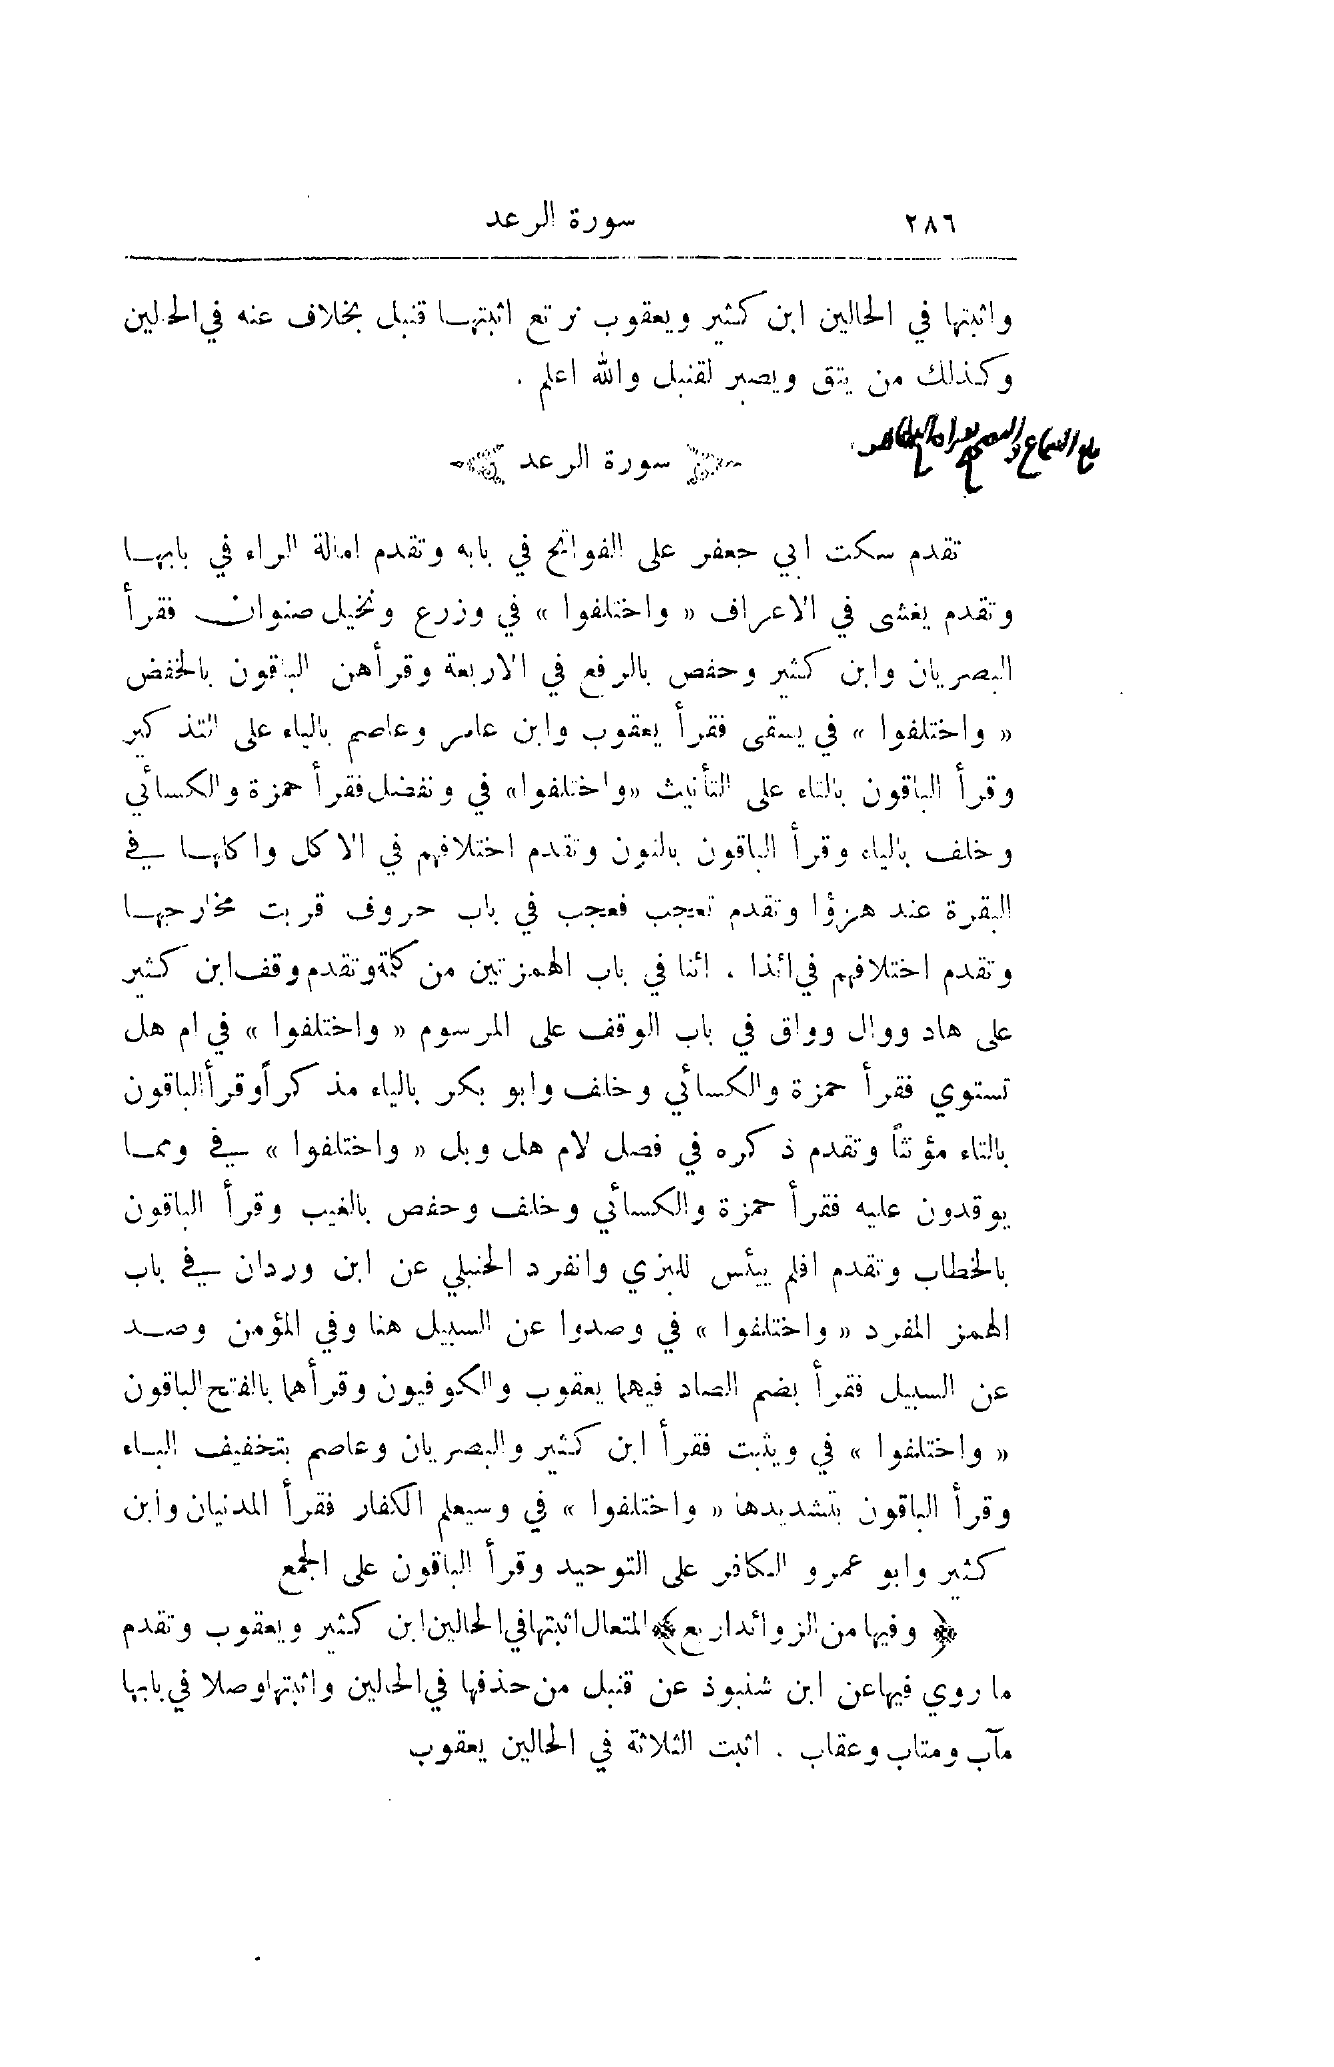 ٢٨٦ سورة الرعد
واثبتها في الحالين ابن كثير ويعقوب نرتع اثبتهـا قنبل بخلاف عنه في الحالين
وكذلك من يتق ويصبر لقنبل والله اعلم .
سورة الرعد
تقدم سكت ابي جعفر على الفواتح في بابه وتقدم امالة الراء في بابهـا
وتقدم يغشى في الاعراف « واختلفوا » في وزرع ونخيل صنوان فقرأ
البصريان وابن كثير وحفص بالرفع في الاربعة وقرأهن الباقون بالخفض
« واختلفوا » في يسقى فقرأ يعقوب وابن عامر وعاصم بالياء على التذكير
وقرأ الباقون بالتاء على التأنيث «واختلفوا» في ونفضل فقرأ حمزة والكسائي
وخلف بالياء وقرأ الباقون بالنون وتقدم اختلافهم في الاكل واكلهـا في
البقرة عند هزؤا وتقدم تعجب فعجب في باب حروف قربت مخارجهـا
وتقدم اختلافهم في ائذا . ائنا في باب الهمزتين من كلمة وتقدم وقف ابن كثير
على هاد ووال وواق في باب الوقف على المرسوم « واختلفوا » في ام هل
تستوي فقرأ حمزة والكسائي وخلف وابو بكر بالياء مذكراً وقرأ الباقون
بالتاء مؤنثاً وتقدم ذكره في فصل لام هل وبل « واختلفوا » في وممـا
يوقدون عليه فقرأ حمزة والكسائي وخلف وحفص بالغيب وقرأ الباقون
بالخطاب وتقدم افلم ييئس للبزي وانفرد الحنبلي عن ابن وردان في باب
الهمز المفرد « واختلفوا » في وصدوا عن السبيل هنا وفي المؤمن وصـد
عن السبيل فقرأ بضم الصاد فيهما يعقوب والكوفيون وقرأهما بالفتح الباقون
« واختلفوا » في ويثبت فقرأ ابن كثير والبصريان وعاصم بتخفيف البـاء
وقرأ الباقون بتشديدها « واختلفوا » في وسيعلم الكفار فقرأ المدنيان وابن
كثير وابو عمرو الكافر على التوحيد وقرأ الباقون على الجمع
﴿ وفيها من الزوائد اربع ﴾ المتعال اثبتها في الحالين ابن كثير ويعقوب وتقدم
ما روي فيها عن ابن شنبوذ عن قنبل من حذفها في الحالين واثبتها وصلا في بابها
مآب ومتاب وعقاب . اثبت الثلاثة في الحالين يعقوب